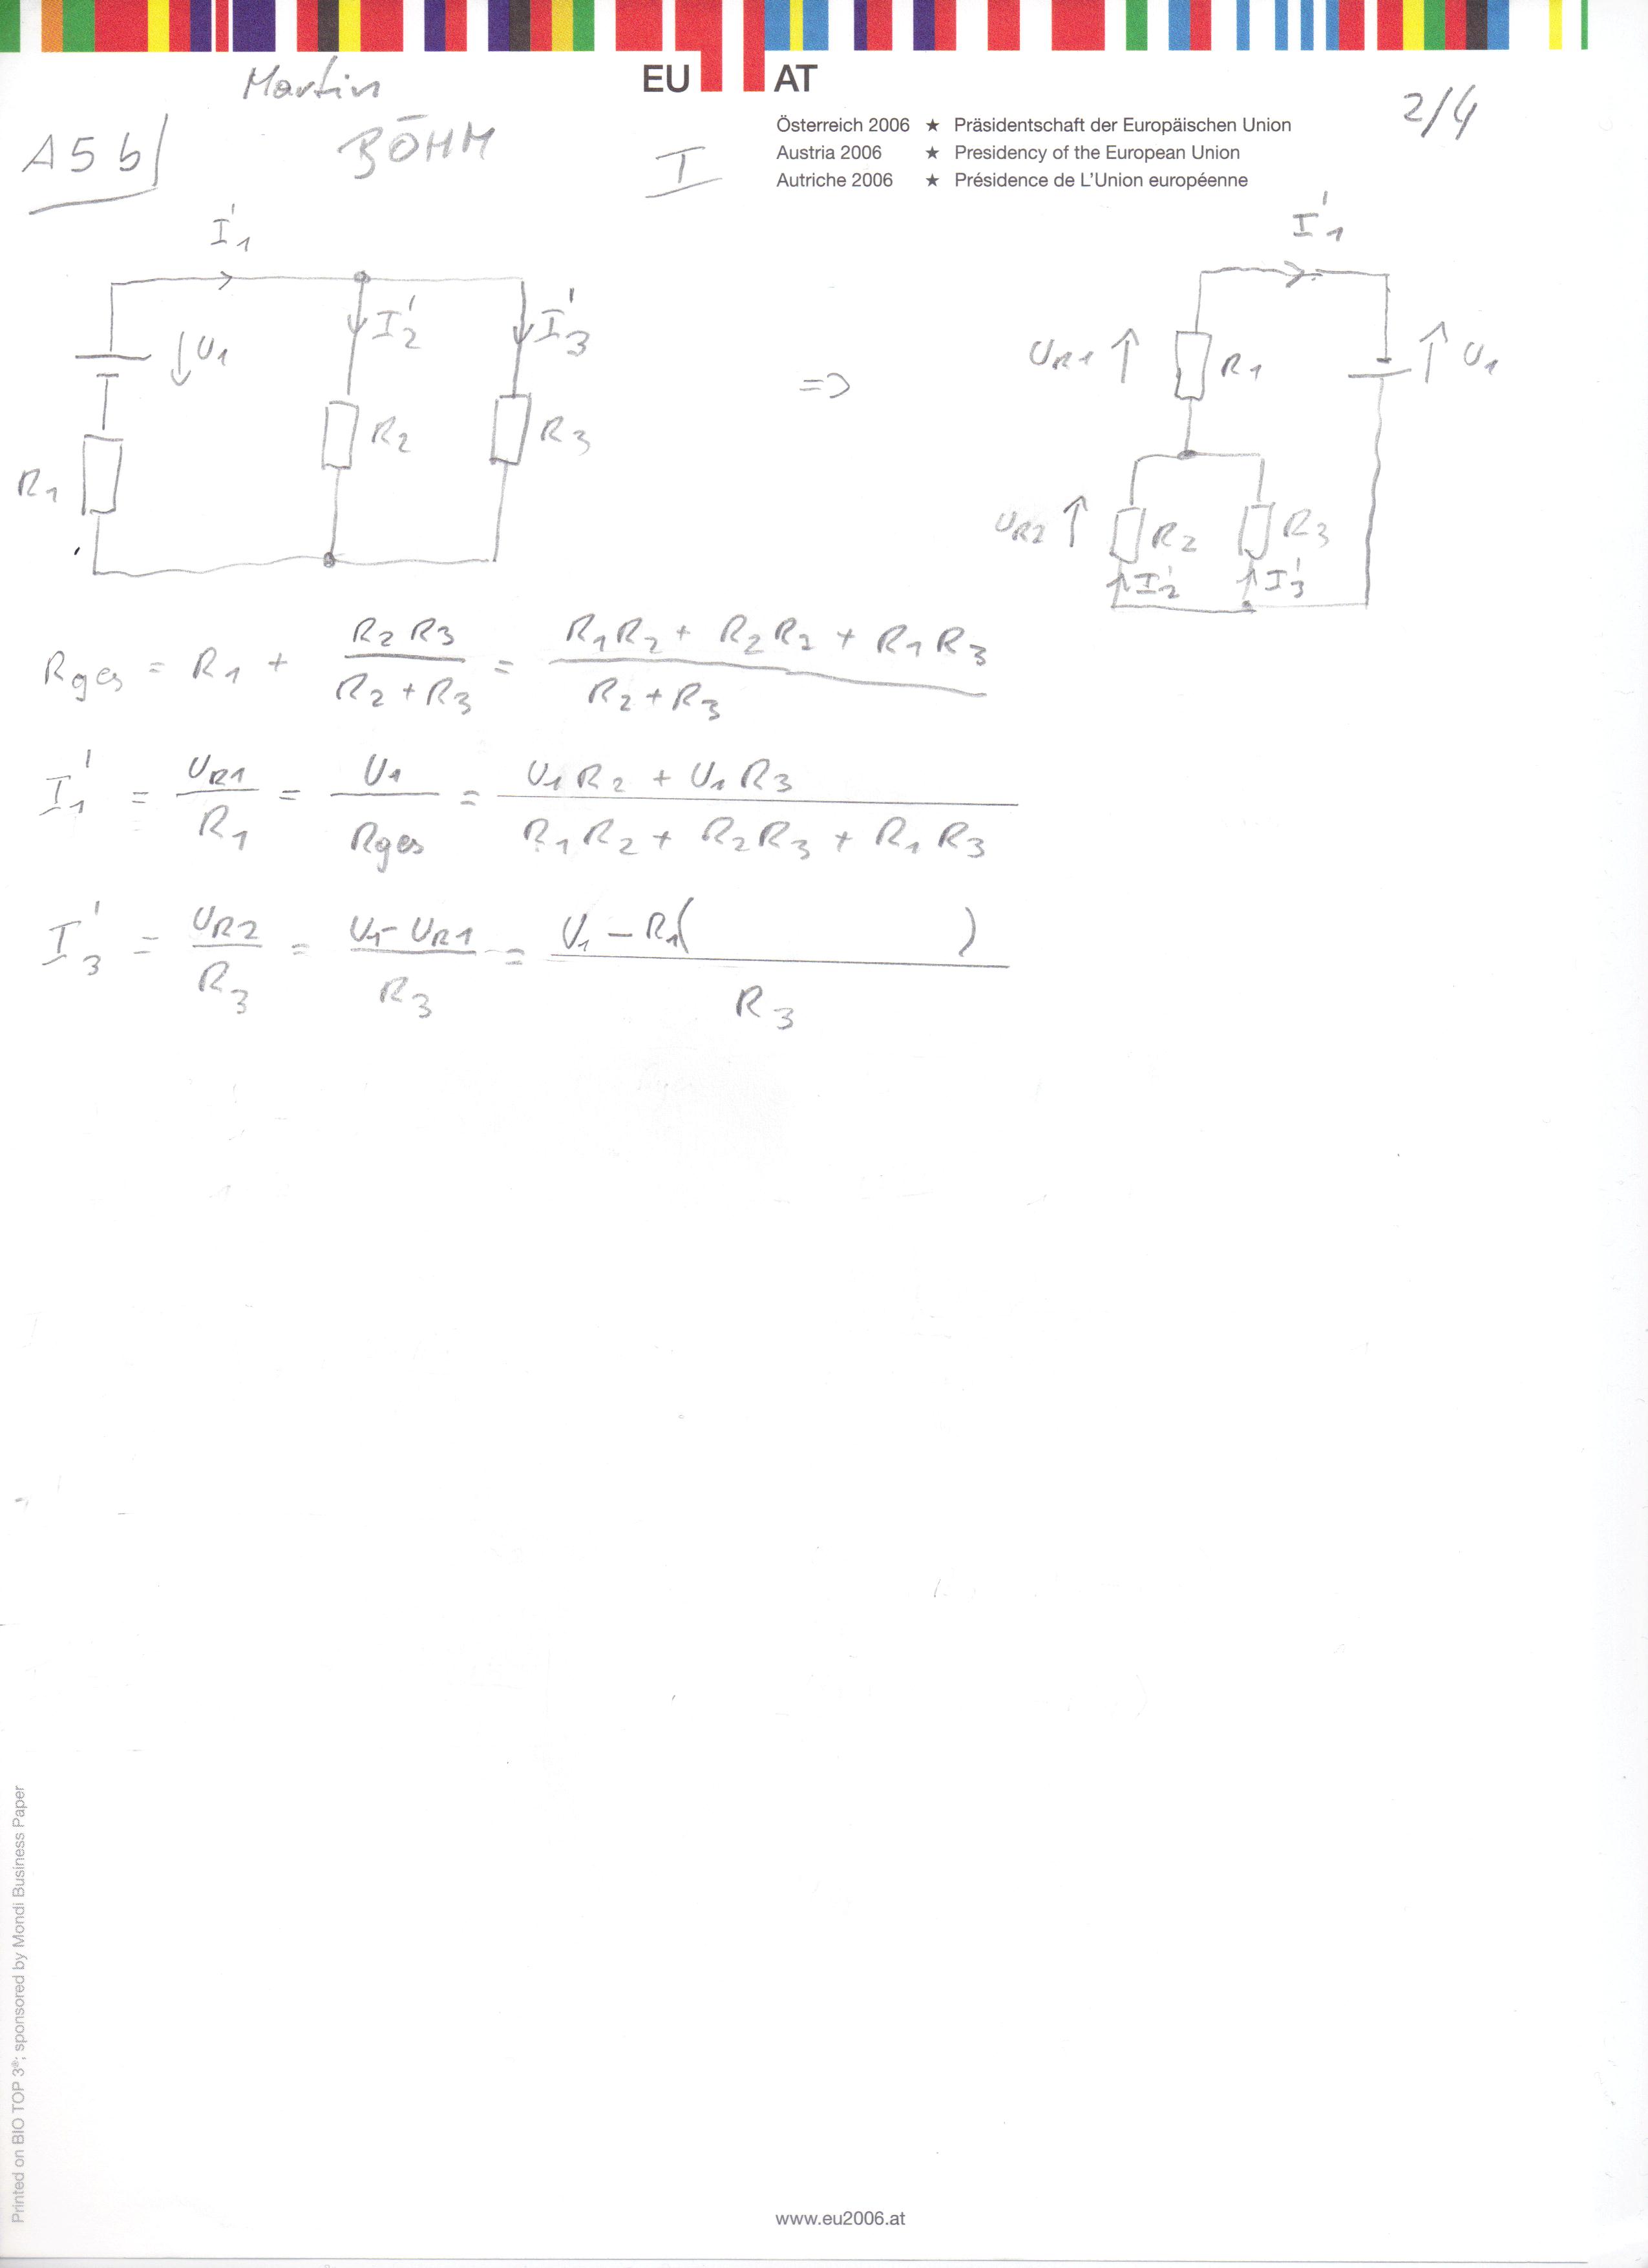 Martin
BÖHM
EU AT
Österreich 2006 ★ Präsidentschaft der Europäischen Union
Austria 2006 ★ Presidency of the European Union
Autriche 2006 ★ Présidence de L'Union européenne
2/4
A5b
I
I'1
U1
I'2
I'3
R1
R2
R3
=>
I'1
UR1
R1
U1
UR2
R2
R3
I'2
I'3
Rges = R1 + R2 R3 / R2 + R3 = R1 R2 + R2 R2 + R1 R3 / R2 + R3
I'1 = UR1 / R1 = U1 / Rges = U1 R2 + U1 R3 / R1 R2 + R2 R3 + R1 R3
I'3 = UR2 / R3 = U1 - UR1 / R3 = U1 - R1( ) / R3
Printed on BIO TOP 3®; sponsored by Mondi Business Paper
www.eu2006.at